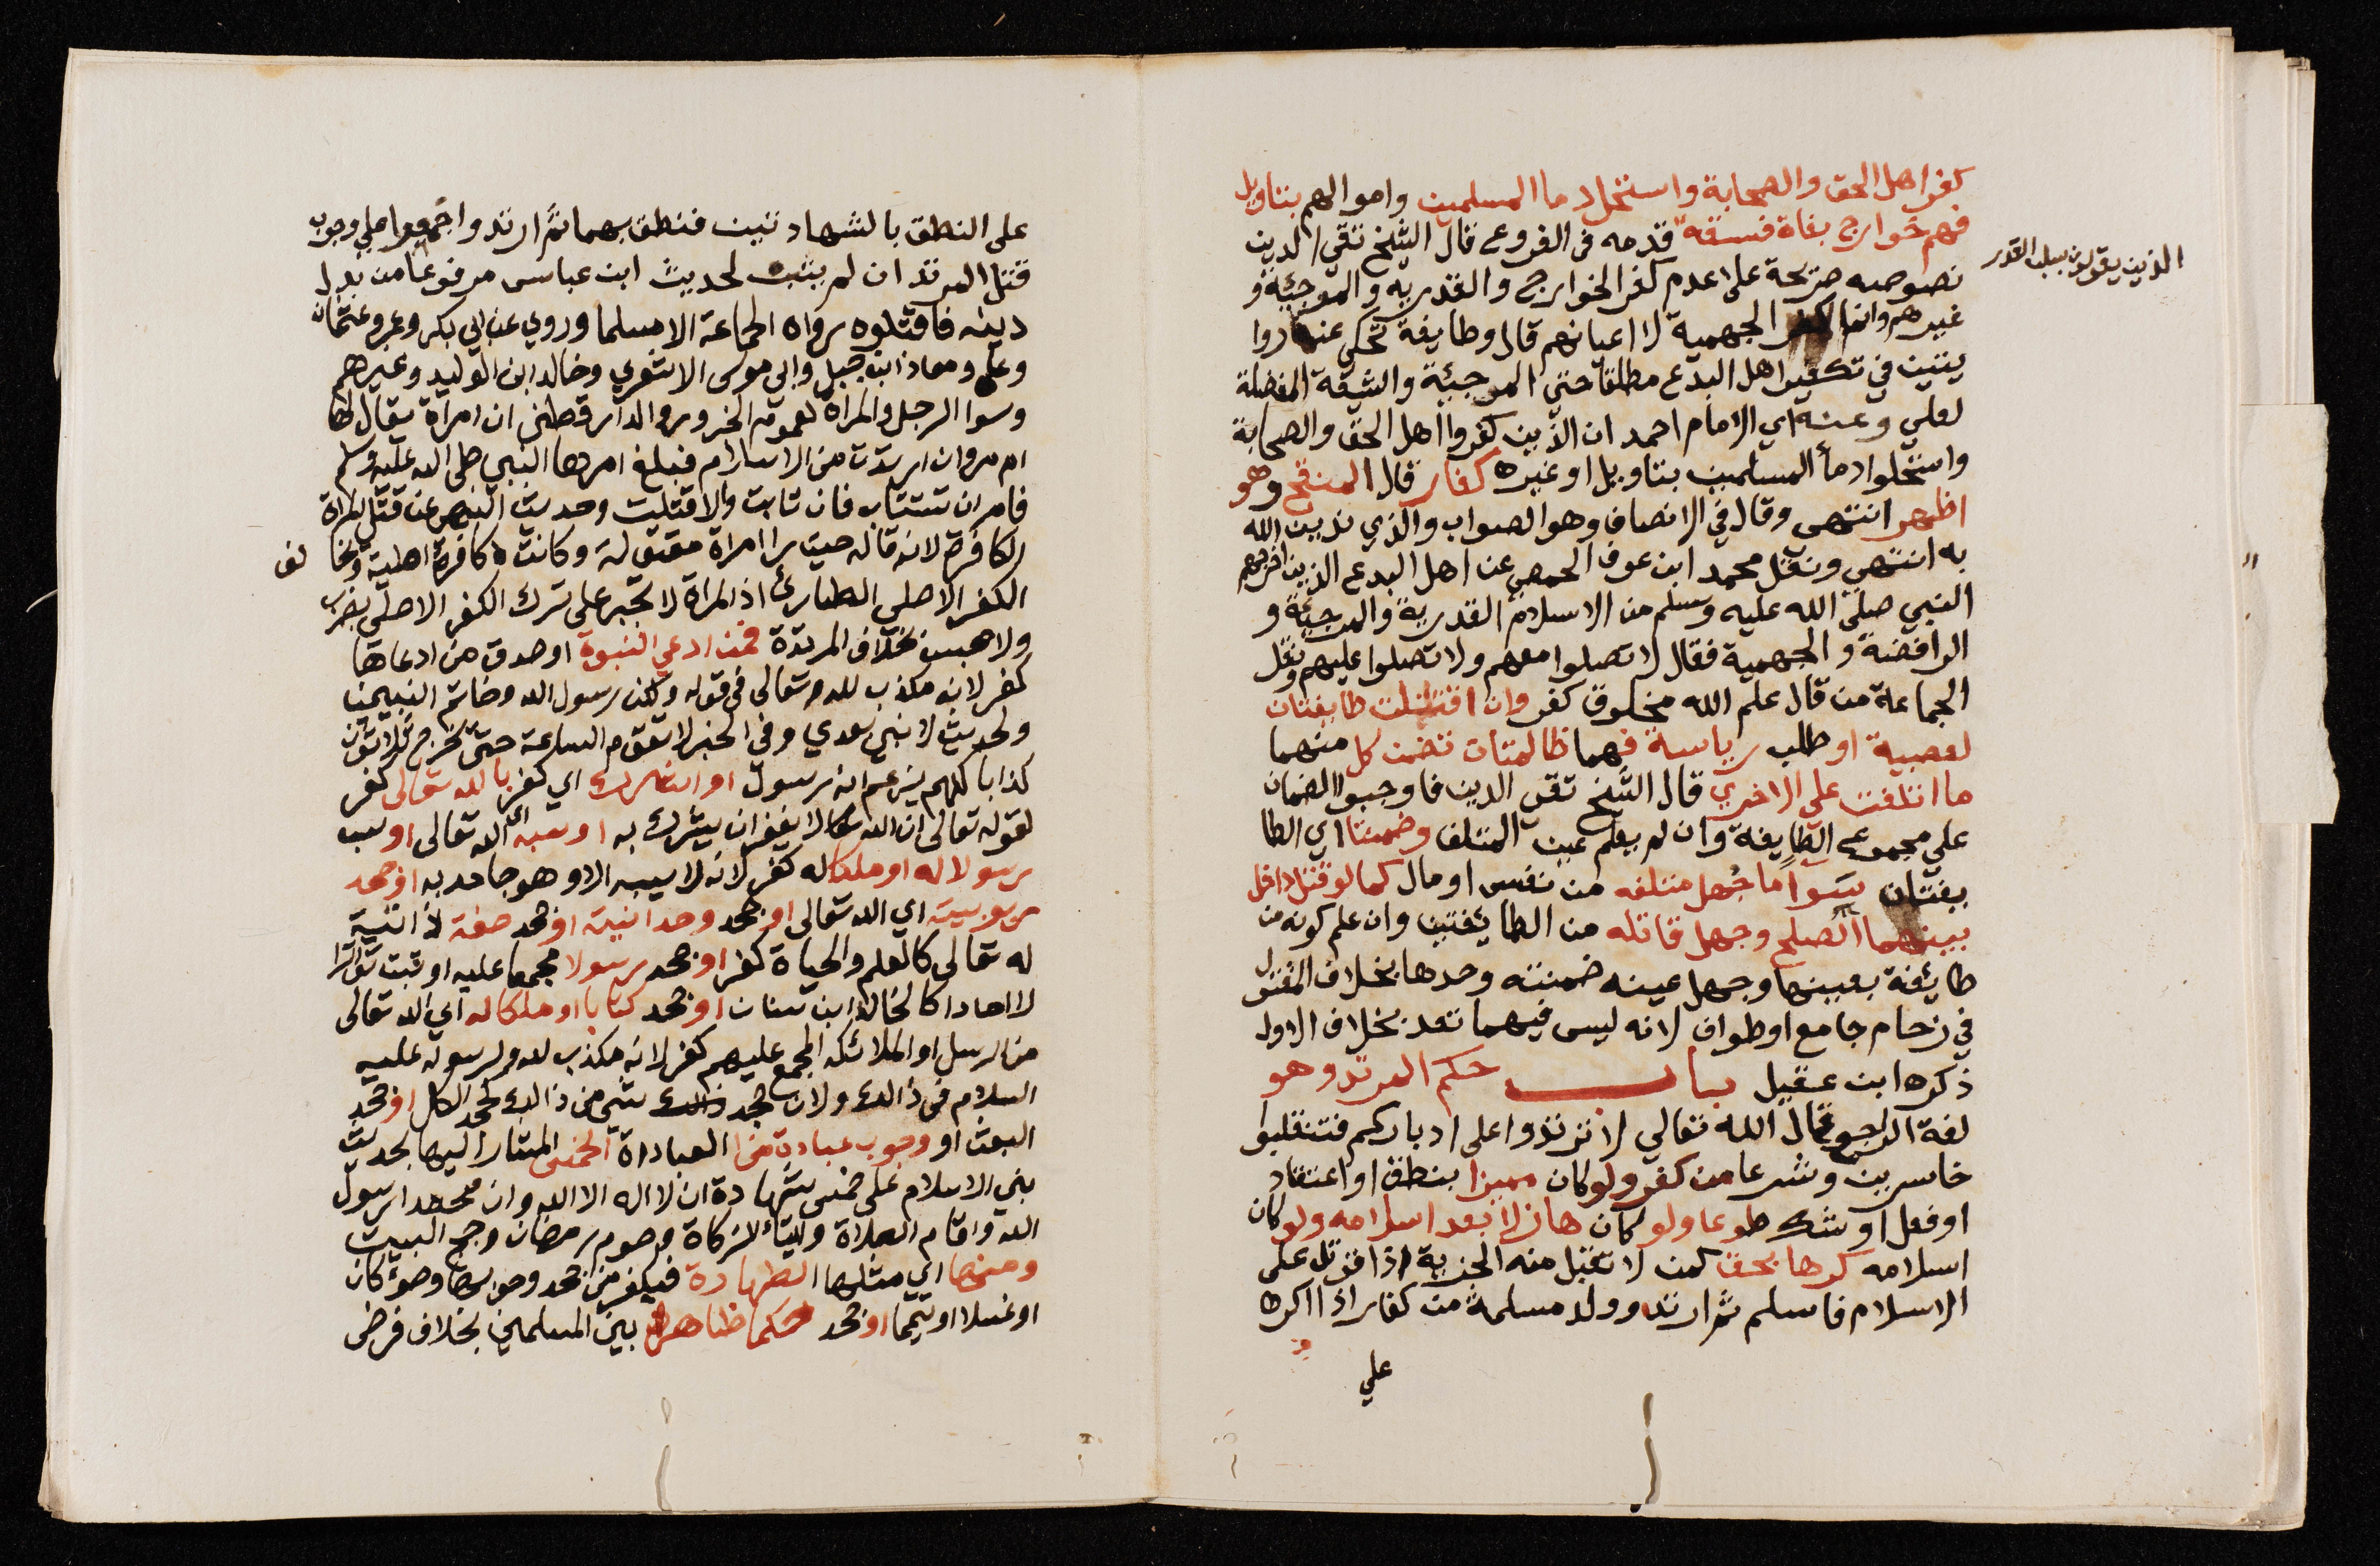 كفر اهل الحق والصحابة واستحل دما المسلمين واموالهم بتاويل
فهم خوارج بغاة فسقة قدمه في الفروع قال الشيخ تقي الدين
نصوصه صريحة على عدم كفر الخوارج والقدرية والمرجئة و
الذين يقولون بسلب القدر
غيرهم وانما كفر الجهمية لا اعيانهم قال وطايفة تحكي عنه روا
يتين في تكفير اهل البدع مطلقا حتى المرجئة والشيعة المفضلة
لعلي وعنه اي الامام احمد ان الذين كفروا اهل الحق والصحابة
واستحلوا دمأ المسلمين بتاويل او غيره كفار قال المنقح وهو
اظهر انتهى وقال في الانصاف وهو الصواب والذي ندين الله
به انتهي ونقل محمد ابن عوف الحمصي عن اهل البدع الذين اخرجهم
النبي صلى الله عليه وسلم من الاسلام القدرية والمرجئة و
الرافضة والجهمية فقال لا تصلوا معهم ولا تصلوا عليهم ونقل
الجماعة من قال علم الله مخلوق كفر وان اقتتلت طايفتان
لعصبية او طلب رياسة فهما ظالمتان تضمن كل منهما
ما اتلفت على الاخري قال الشيخ تقي الدين فاوجبوا الضمان
علي مجموع الطايفة وان لم يعلم عين المتلف وضمنتا اي الطا
يفتان سوا ما جُهل متلفه من نفس او مال كما لو قتل داخل
بينهما الصلح وجهل قاتله من الطائفتين وان علم كونه من
طايئفة بعينها وجهل عينه ضمنته وحدها بخلاف المقتول
في زحام جامع او طواف لانه ليس فيهما تعد بخلاف الاول
ذكره ابن عقيل باب حكم المرتد وهو
لغة الراجع قال الله تعالي لا ترتدوا على ادباركم فتنقلبوا
خاسرين وشرعا من كفر ولو كان مميزا بنطق او اعتقاد
او فعل او شك طوعا ولو كان هازلا بعد اسلامه ولو كان
اسلامه كرها بحق كمن لا تقبل منه الجزية اذا قوتل على
الاسلام فاسلم ثم ارتد وولد مسلمة من كفار اذا اكره
علي
على النطق بالشهادتين فنطق بهما ثم ارتد واجمعوا على وجوب
قتل المرتد ان لم يتب لحديث ابن عباس مرفوعا من بدل
دينه فاقتلوه رواه الجماعة الا مسلما وروي عن ابي بكر وعمر وعثمان
وعلي ومعاذ ابن جبل وابي موسى الاشعري وخالد ابن الوليد وغيرهم
وسوا الرجل والمراة لعموم الخبر وروا الدار قطني ان امراة يقال لها
ام مروان ارتدت من الاسلام فبلغ امرها النبي صلى الله عليه وسلم
فامر ان تستتاب فان تابت والا قتلت وحديث النهي عن قتل المراة
الكافرة لانه قاله حيث را امراة مقتولة وكانت كافرة اصلية ويخا لف
الكفر الاصلي الطارئ اذ المراة لا تجبر على ترك الكفر الاصلي بضرب
ولا حبس بخلاف المرتدة فمن ادعي النبوة او صدق من ادعاها
كفر لانه مكذب لله تعالى في قوله ولكن رسول الله وخاتم النبيين
ولحديث لا نبي بعدي وفي الخبر لا تقوم الساعة حتى يخرج ثلاثون
كذابا كلهم يزعم انه رسول او اشرك اي كفر بالله تعالى كفر
لقوله تعالى ان الله لا يغفر ان يشرك به او سبه اي الله تعالى او سب
رسولا له او ملكا له كفر لانه لا يسبه الا وهو جاحد به او جحد
ربوبيته اي الله تعالى او جحد وحدانيته او جحد صفة ذاتية
له تعالى كالعلم والحياة كفر او جحد رسولا مجمعا عليه او ثبت تواترا
لا احادا كالخالد ابن سنان او جحد كتابا او ملكا له اي الله تعالى
من الرسل او الملائكه المجمع عليهم كفر لانه مكذب لله ولرسوله عليه
السلام في ذالك ولان جحد شي من ذالك كجحد الكل او جحد
البعث او وجوب عبادة من العباداة الخمس المشار اليها بحديث
بني الاسلام على خمس شهادة ان لا اله الا الله وان محمدا رسول
الله واقام الصلاة وايتأ الزكاة وصوم رمضان وحج البيت
ومنها اي مثلها الطهارة فيكفر من جحد وجوبها وضوء كان
او غسلا او تيمما او جحد حكما ظاهرا بين المسلمين بخلاف فرض